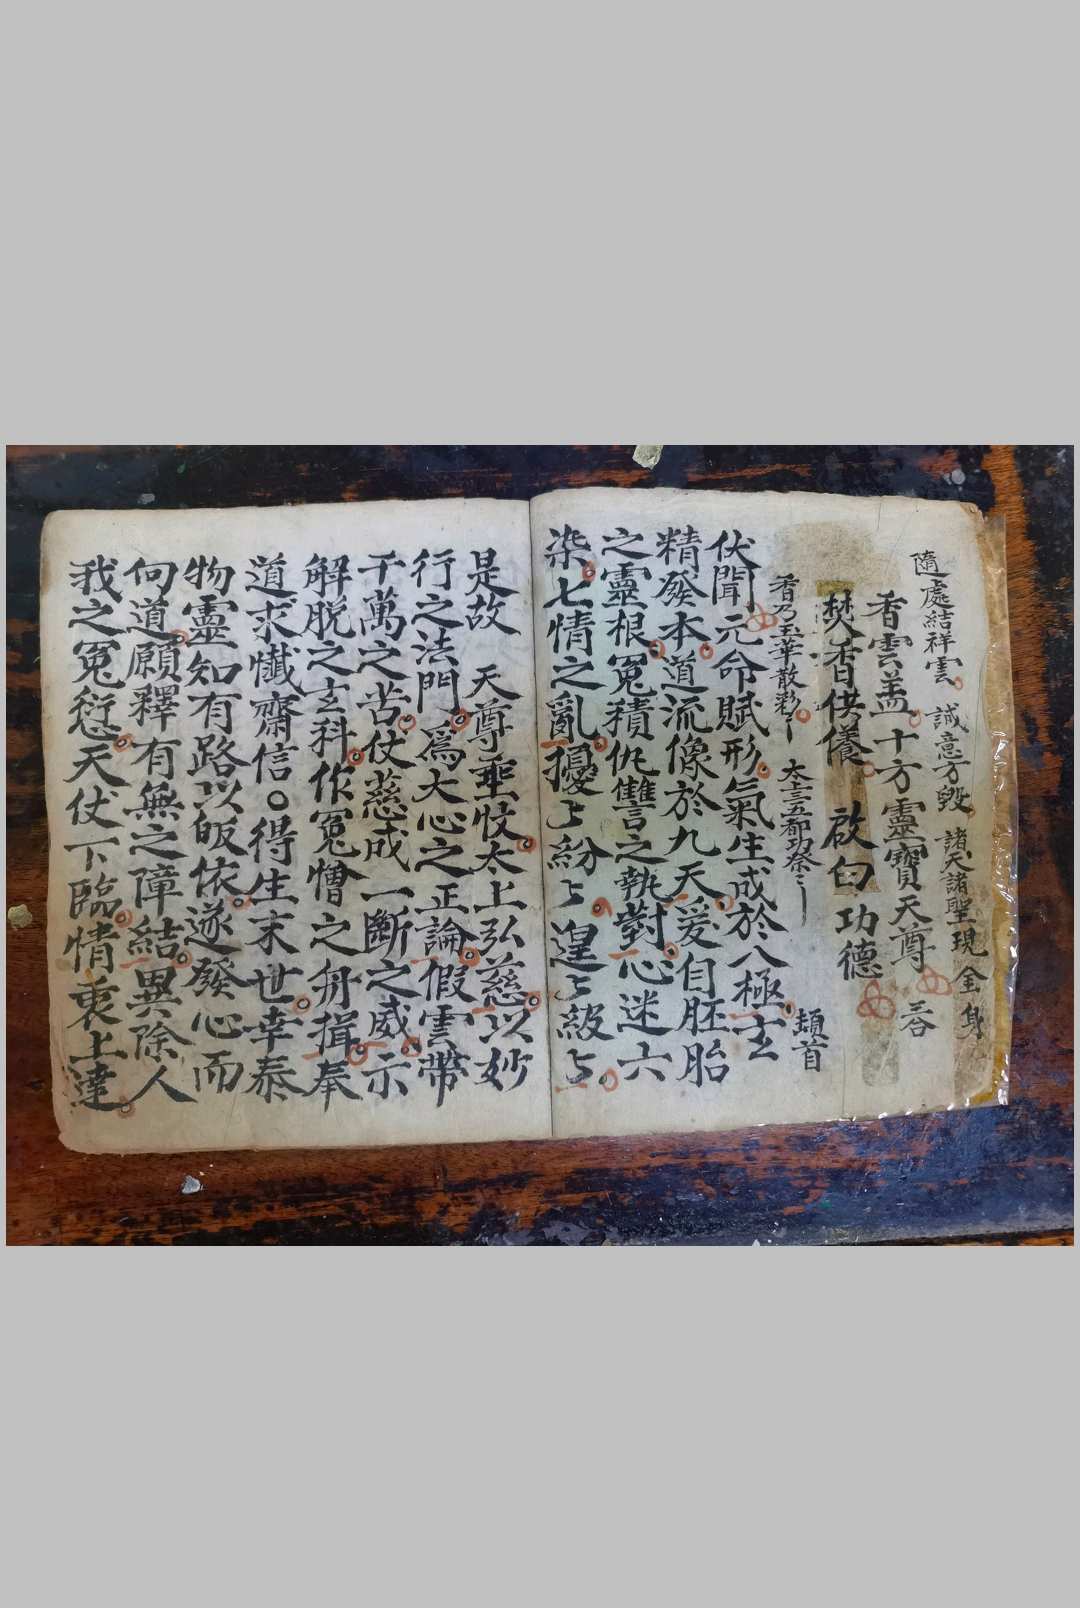 隨處結祥雲 誠意方毀 諸天諸聖現金身
香雲盖 十方靈寶天尊 三吞
焚香供養 啟白功德
香乃玉華散彩 太上三五都功 頫首
伏聞元命賦形氣生成於八極玄
精發本道流像於九天爰自胚胎
之靈根冤積仇讐言之執對心迷六
染七情之亂擾〻紛〻遑〻級〻
是故 天尊垂忮太上弘慈以妙
行之法門爲大心之正論假雲幣
千萬之苦仗慈成一斷之威示
解脱之玄科作冤憎之舟揖奉
道求懴齋信得生末世幸忝
物靈知有路以皈依遂發心而
向道願釋有無之障結異除人
我之冤愆天仗下臨情衷上達